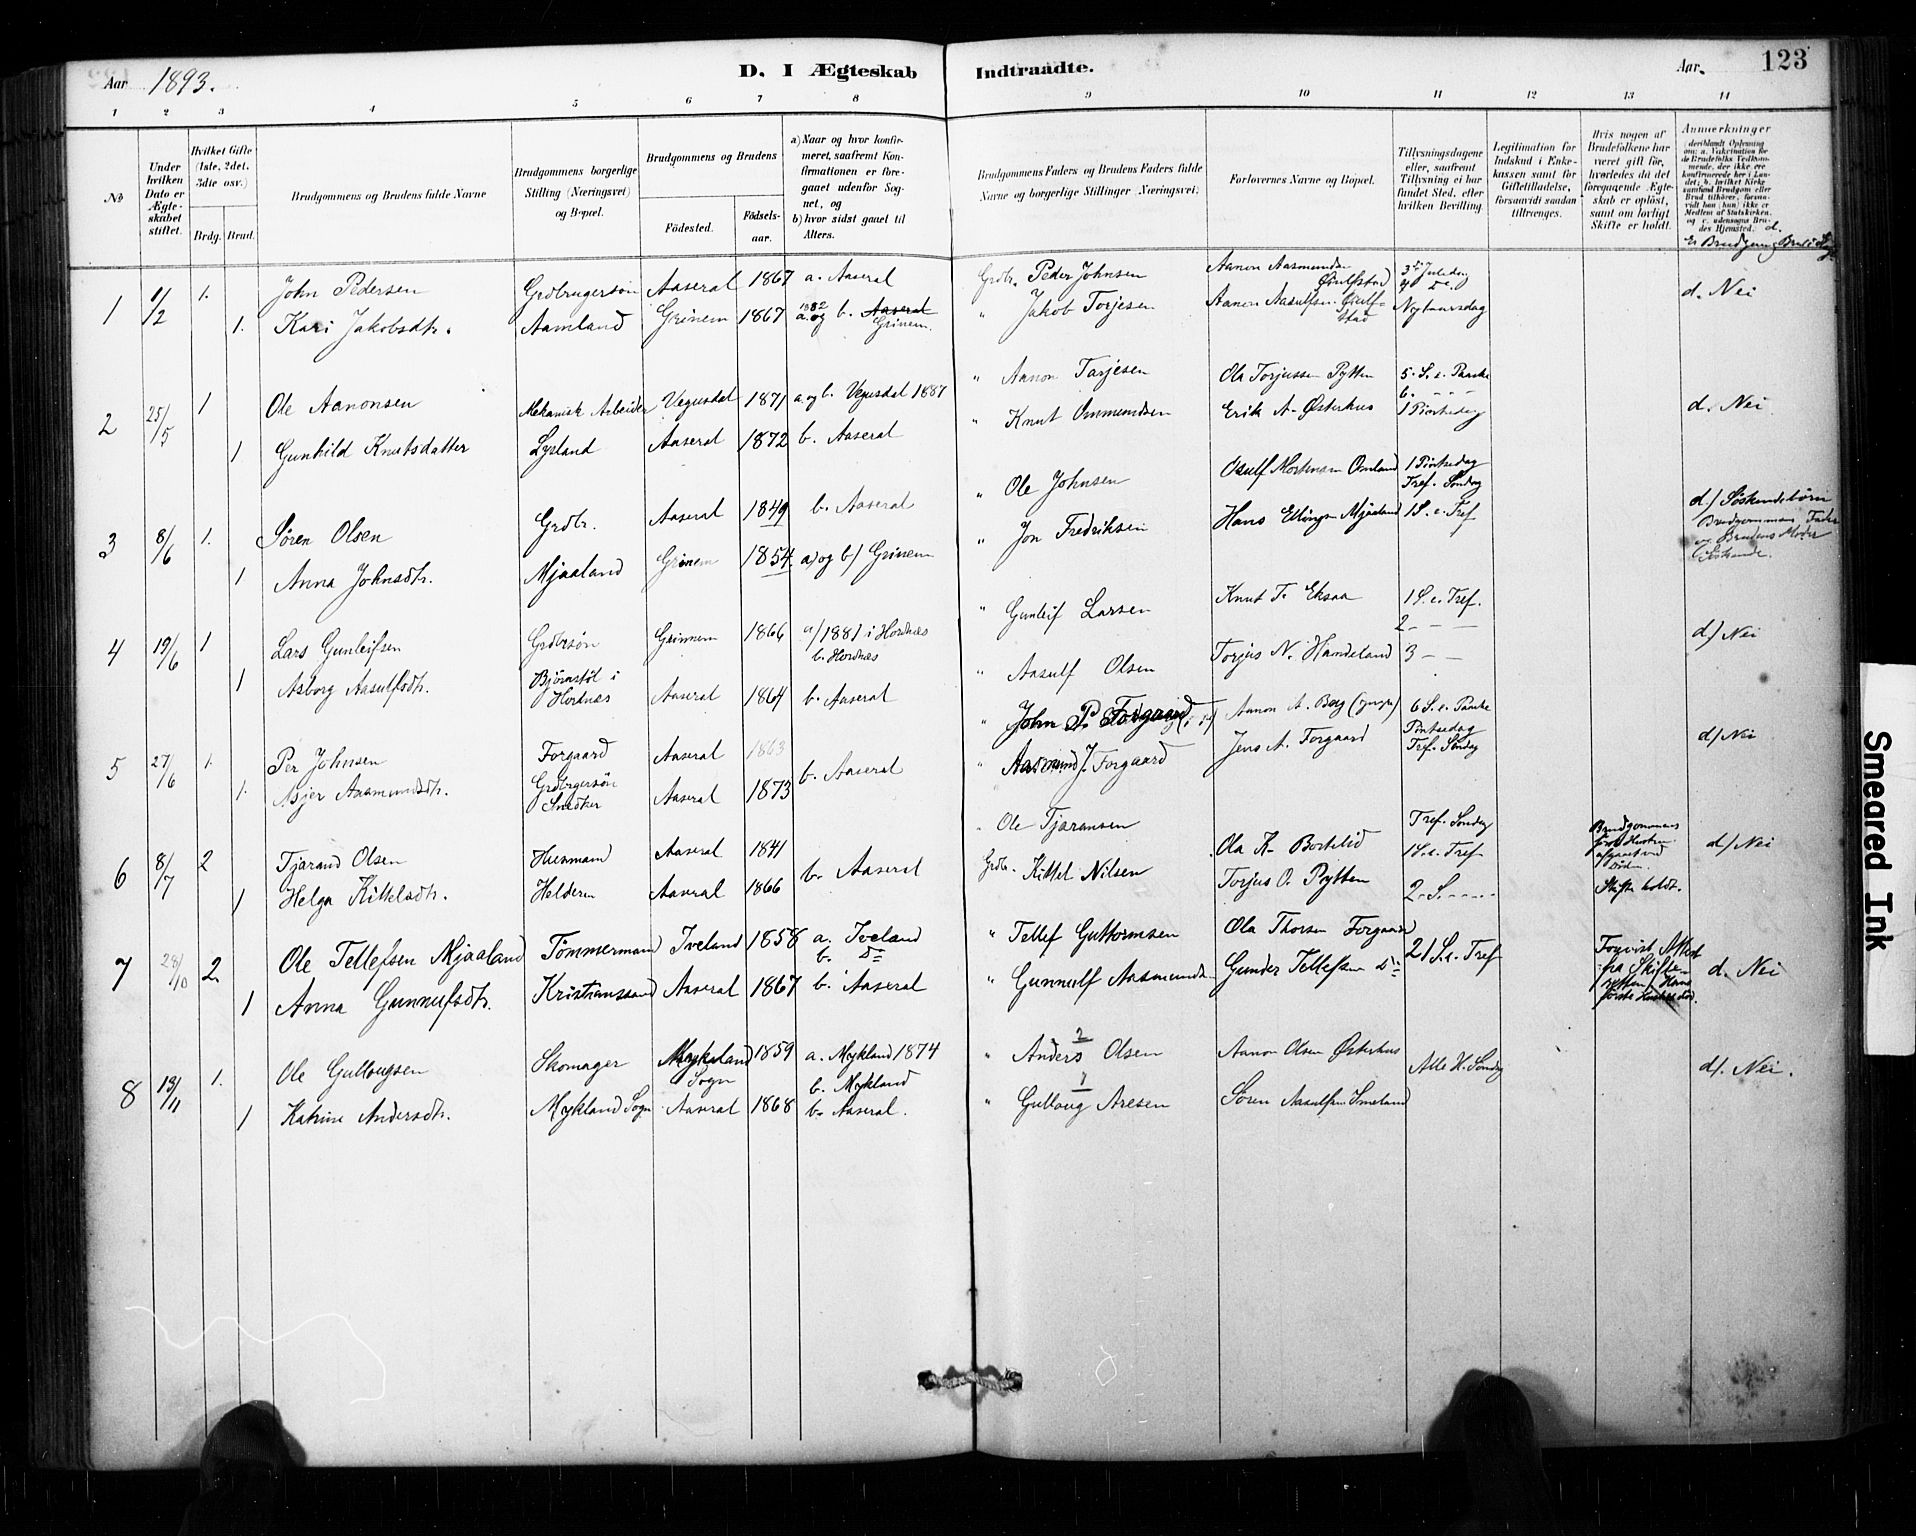 Aar 1893.
D. I Ægteskab Indtraadte.
Aar. 123
1 2 3 4 5 6 7 8 9 10 11 12 13 14
No
Under hvilken Dato er Ægteskabet stiftet.
Hvilket Gifte (1ste, 2det, 3die osv.)
Brdg. Brud.
Brudgommens og Brudens fulde Navne
Brudgommens borgerlige Stilling (Næringsvei) og Bopæl.
Brudgommens og Brudens
Fødested.
Fødselsaar.
a) Naar og hvor konfirmeret, saafremt Konfirmationen er foregaaet udenfor Sognet, og
b) hvor sidst gaaet til Alters.
Brudgommens Faders og Brudens Faders fulde Navne og borgerlige Stillinger (Næringsvei).
Forlovernes Navne og Bopæl.
Tillysningsdagene eller, saafremt Tillysning ei har fundet Sted, efter hvilken Bevilling
Legitimation for Indskud i Enkekassen samt for Giftetilladelse, forsaavidt saadan tiltrænges.
Hvis nogen af Brudefolkene har været gift før, hvorledes da det foregaaende Ægteskab er opløst, samt om lovligt Skifte er holdt.
Anmerkninger
1 1/2 1. John Pedersen Grdbrugersøn Aaseral 1867 a. Aaseral Grdbr. Peder Johnsen Aanon Aasmundsen Øsulfstad 3die Juledag d. Nei
1. Kari Jakobsdtr. Aamland Grinem 1867 1882 a. og b. Aaseral Grinem. " Jakob Torjesen Aanon Aasulfsen Øsulfstad Nytaarsdag
2 25/5 1 Ole Aanonsen Mekanisk Arbeider Vegusdal 1871 a. og b. Vegusdal 1887 " Aanon Tarjesen Ola Torjussen Pytten 5. S. e. Paaske 6. - - - d. Nei
1 Gunhild Knutsdatter Lysland Aaseral 1872 b. Aaseral " Knut Ommundsen Erik A. Østerhus 1 Pintsedag
3 8/6 1. Søren Olsen Grdbr. Aaseral 1849 b. Aaseral " Ole Johnsen Osulf Mortensen Omland 1 Pintsedag Tref. Søndag d/ Søskendebørn Brudgommens Fader og Brudens Moder Søskende.
1 Anna Johnsdtr. Mjaaland Grinem 1854. a) og b) Grinem " Jon Fredriksen Hans Ellingsen Mjaaland 1 S. e. Tref
4 19/6 1 Lars Gunleifsen Grdbrsøn Grinnem 1866 a/ 1881 i Hordnæs b. Hordnæs " Gunleif Larsen Knut T. Eksaa 1 S. e. Tref. 2 - - - d/ Nei
1 Asborg Aasulfsdtr. Bjørnstøl i Hordnæs Aaseral 1864 b. Aaseral " Aasulf Olsen Torjus N. Hamdeland 3 - -
5 27/6 1. Per Johnsen Forgaard Aaseral 1863 b. Aaseral " John P. Forgaard Aanon A. Berg 6 S. e. Paaske Pintsedag d/ Nei
1. Asjer Aasmundsdtr. Grdbrgersøn Snedker Aaseral 1873 " Aasmund J. Forgaard Jens A. Forgaard Tref. Søndag
6 8/7 2 Tjarand Olsen Husmand Aaseral 1841 b. Aaseral " Ole Tjaransen Ola K. Bortelid Tref. Søndag 1 S. e. Tref Brudgommens første Hustru afgaaet ved Døden. d/ Nei
1 Helga Kittelsdtr. Helderen Aaseral 1866 Grdbr. Kittel Nilsen Torjus O. Pytten 2. S. - - - - Skifte holdt.
7 28/10 2. Ole Tellefsen Mjaaland Tømmermand Iveland 1858 a. Iveland b. Do " Tellef Guttormsen Ola Thorsen Forgaard 21 S. e. Tref Forevist Attest fra Skifteretten / Hans første Hustru død. d. Nei
1 Anna Gunnufsdtr. Kristianssand Aaseral 1867 b. Aaseral " Gunnulf Aasmunds. Gunder Tellefsen Do
8 13/11 1. Ole Gullougsen Skomager Mykland Sogn 1859 a. Mykland 1874 b. Mykland " 2 Anders Olsen Aanon Olsen Østerhus Alle H. Søndag d/. Nei.
1 Katrine Andersdtr. Mykland Sogn Aaseral 1868 b. Aaseral. " 1 Gulloug Aresen Søren Aasulfsen Smeland
Smeared Ink